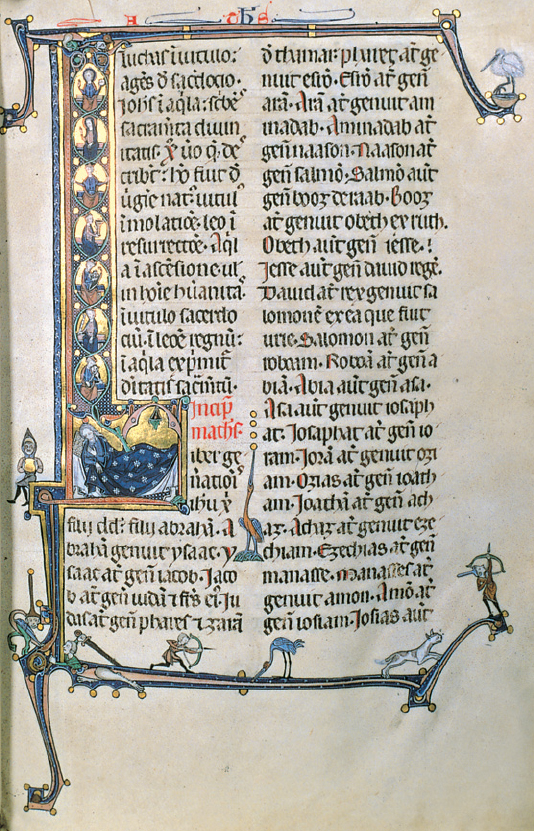 luchas ī uitulo:
agēs đ sac̄docio.
Joħs ī aq̄la: sc̄bēs
sacram̄ta diuin
itatis. x̄ u̾o q̄ đe
cribit: hō fiuit đ
uigīe nat⁹. uitul⁹
īmolatiōe. leo ī
resurrectōe. Aq̄l
a ī ascēsione. ul̾
in hoīe hūanita.
ī uitulo sacerdo
ciū. ī leōe regnū:
ī aq̄la exp̄mit̾
diītatis sac̄m̄tū.
Jncip̄
math̄s.
iber ge
n̄atiōi
ihū x̄
filij dd̾. filij abrahā. A
brahā genuit ysaac. y
saac at̄ gen̄ iacob. Jaco
b at̄ gen̄ iudā ⁊ fr̄s ei⁹. Ju
das at̄ gen̄ phares ⁊ zarā
đ thamar. phareȥ at̄ ge
nuit esrō. Esrō at̄ gen̄
arā. Arā at̄ genuit am
inadab. Aminadab at̄
gen̄ naason. Naason at̄
gen̄ salmō. Salmō aūt
gen̄ booȥ de raab. Booȥ
at̄ genuit obeth ex ruth.
Obeth aūt gen̄ iesse.
Jesse aūt gen̄ dauid regē.
Dauid at̄ rex genuit sa
lomonē ex ea que fuit
urie. Salomon at̄ gen̄
roboam. Roboā at̄ gen̄ a
biā. Abia aūt gen̄ asa.
Asa aūt genuit iosaph
at. Josaphat at̄ gen̄ io
ram. Jorā at̄ gen̄ oȥi
am. Oȥias at̄ gen̄ ioath
am. Joathā at̄ gen̄ ach
aȥ. Achaȥ at̄ genuit eȥe
chiam. Eȥechias at̄ gen̄
manasse. Manasses at̄
genuit amon. Amō at̄
gen̄ iosiam. Josias aūt